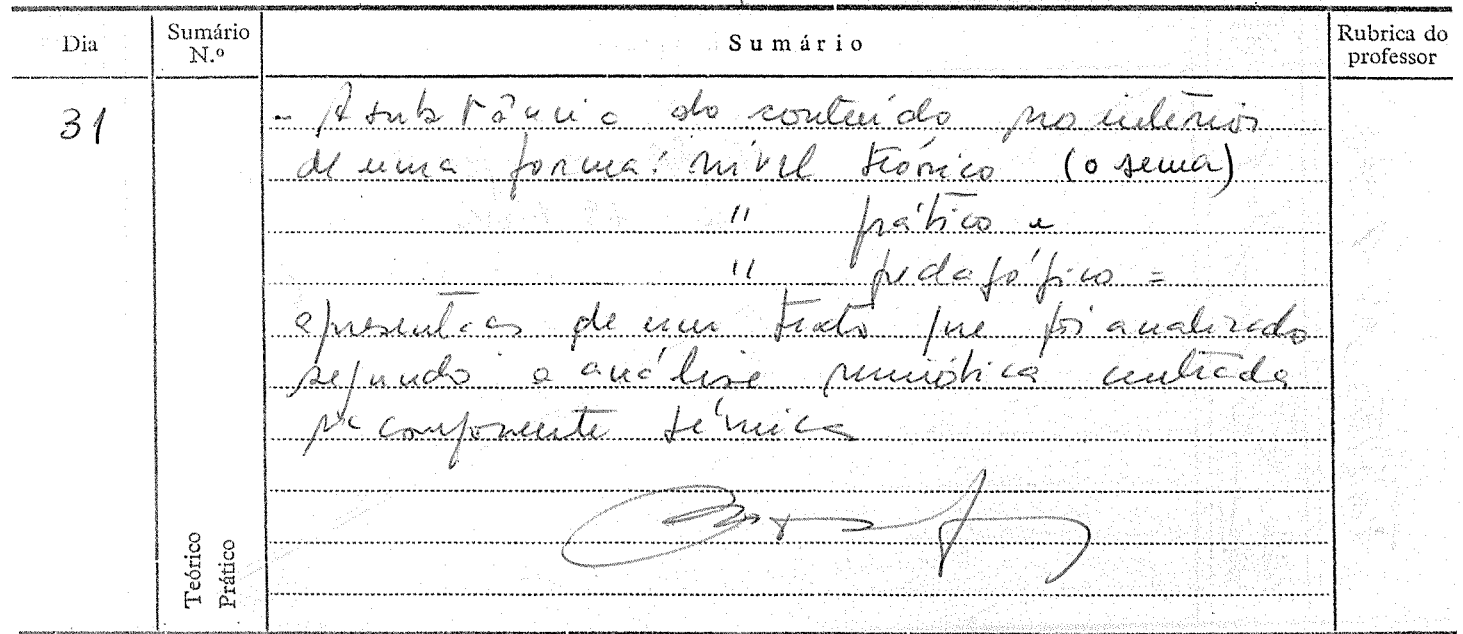 Dia
Sumário N.º
Sumário
Rubrica do professor
31
- A substância do conteúdo no interior
de uma forma: nível teórico (o sema)
" prático e
" pedagógico =
apresentação de um texto que foi analizado
segundo a análise semiótica centrada
na componente sémica
Teórico
Prático